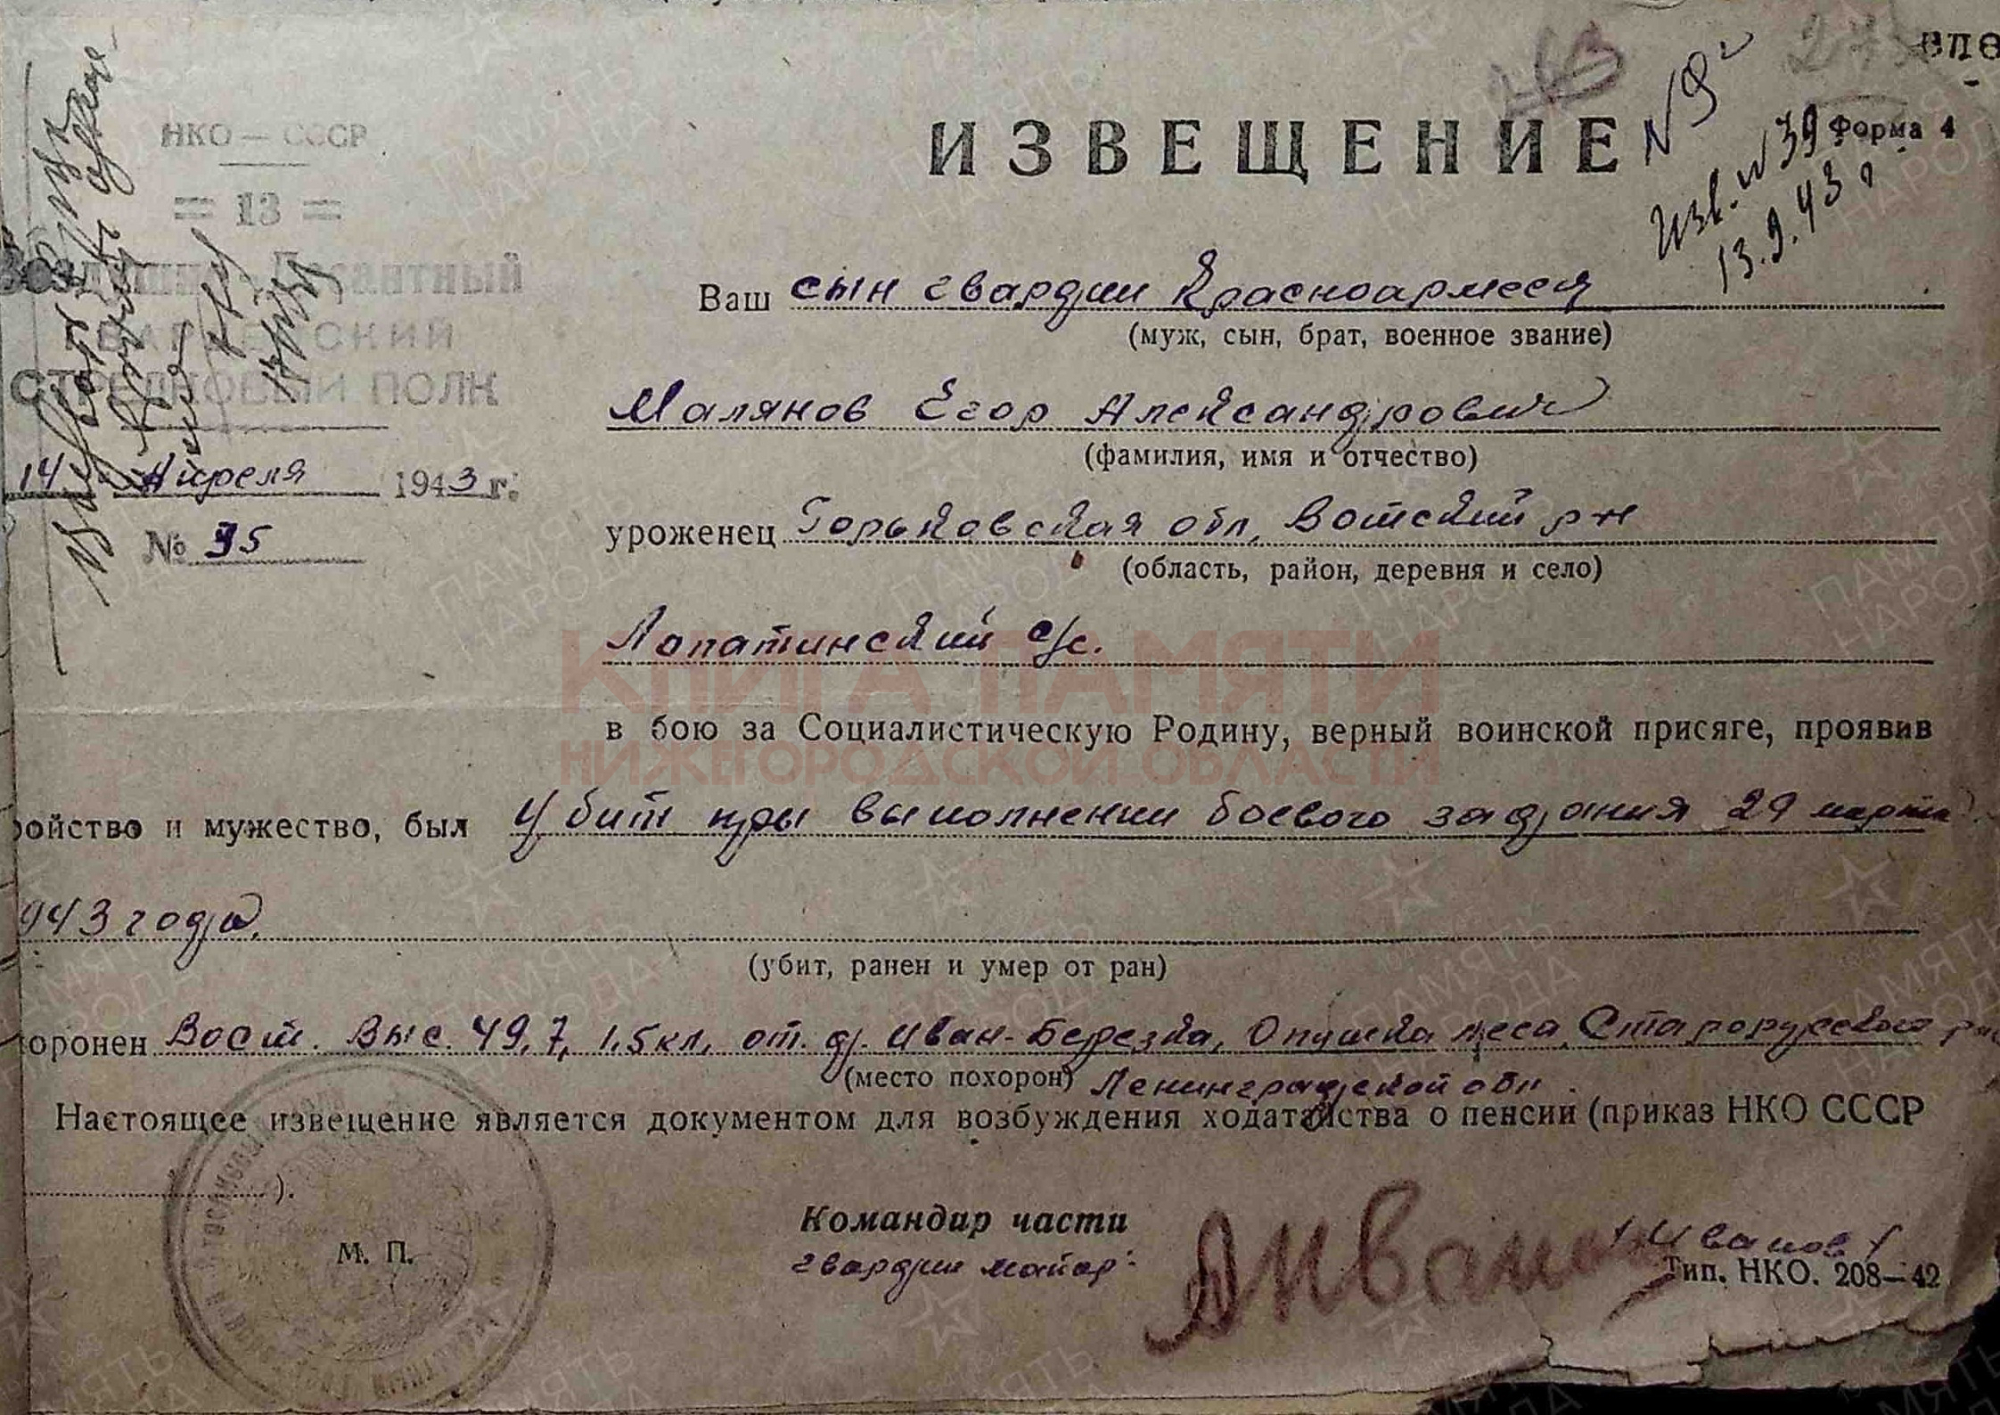 ИЗВЕЩЕНИЕ
Форма 4
N 9
Изв. N 39
13.9.43 г
НКО — СССР
= 13 =
Воздушно-Десантный
ГВАРДЕЙСКИЙ
СТРЕЛКОВЫЙ ПОЛК
14 Апреля 1943 г.
№ 35
Ваш сын гвардии Красноармеец
(муж, сын, брат, военное звание)
Малянов Егор Александрович
(фамилия, имя и отчество)
уроженец Горьковская обл, Вотский р-н
(область, район, деревня и село)
Лопатинский с/с.
в бою за Социалистическую Родину, верный воинской присяге, проявив
ройство и мужество, был Убит при выполнении боевого задания 29 марта
943 года.
(убит, ранен и умер от ран)
оронен Вост. Выс. 49,7, 1,5 кл, от. д. Иван-Березка, Опушка леса, Старорусского
(место похорон) Ленинградской обл.
Настоящее извещение является документом для возбуждения ходатайства о пенсии (приказ НКО СССР
).
М. П.
Командир части
гвардии майор
Иванов
Тип. НКО. 208—42
КНИГА ПАМЯТИ
НИЖЕГОРОДСКОЙ ОБЛАСТИ
ПАМЯТЬ
НАРОДА